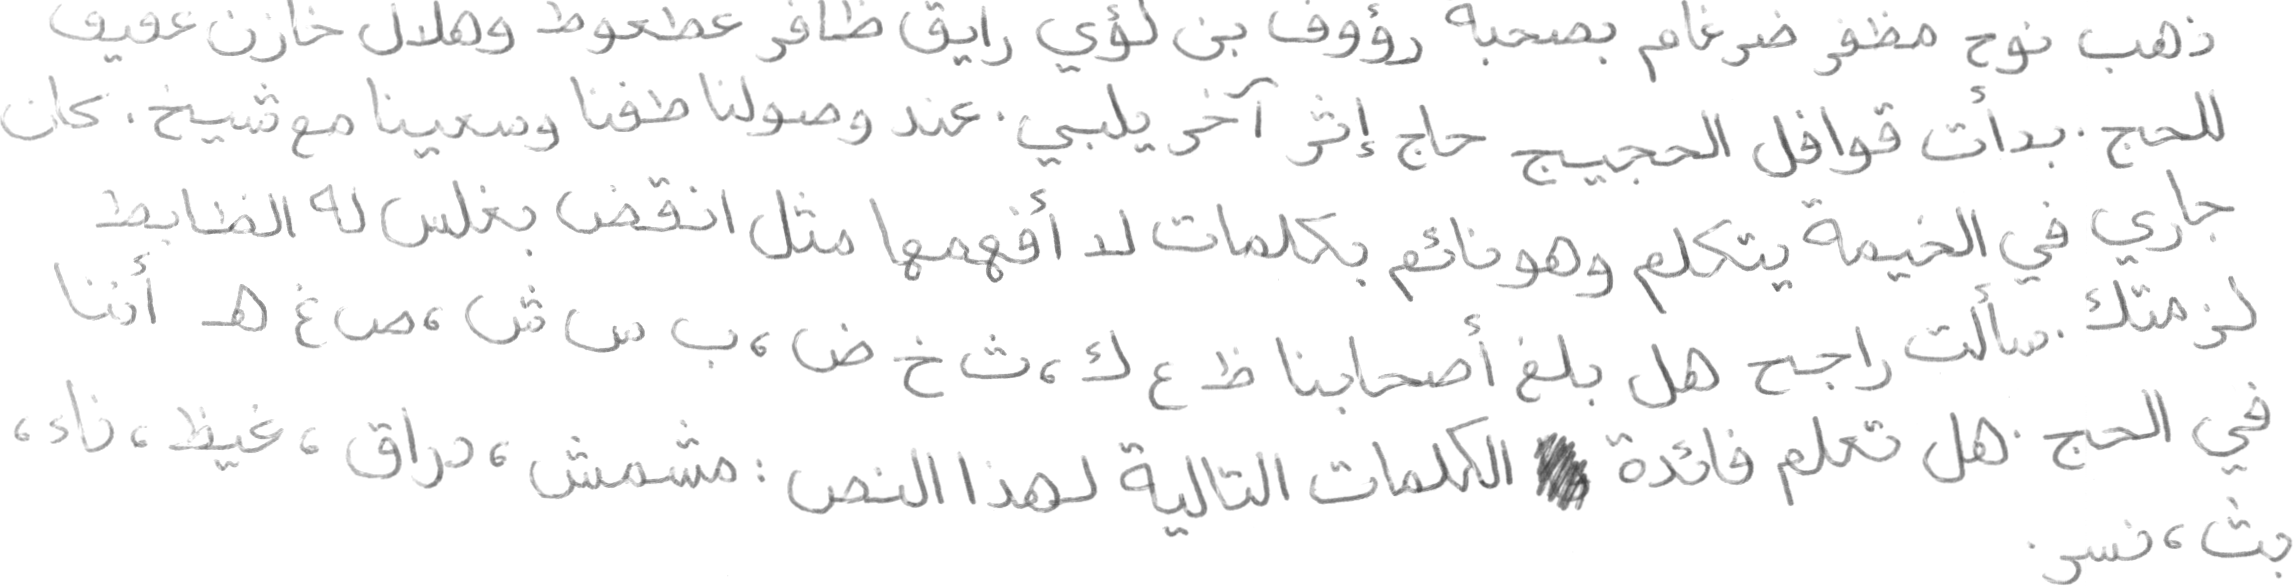 ذهب نوح مظفر ضرغام بصحبة رؤوف بن لؤي رايق ظافر عطعوط وهلال خازن عفيف
للحج. بدأت قوافل الحجيج حاج إثر آخر يلبي. عند وصولنا طفنا وسعينا مع شيخ. كان
جاري في الخيمة يتكلم وهو نائم بكلمات لا أفهمها مثل انقض بغلس له الضابط
لزمتك. سألت راجح هل بلغ أصحابنا ظ ع ك، ث خ ض، ب س ش، ص غ هـ أننا
في الحج. هل تعلم فائدة الكلمات التالية لهذا النص: مشمش، دراق، غيظ، ناء،
بث، نسر.